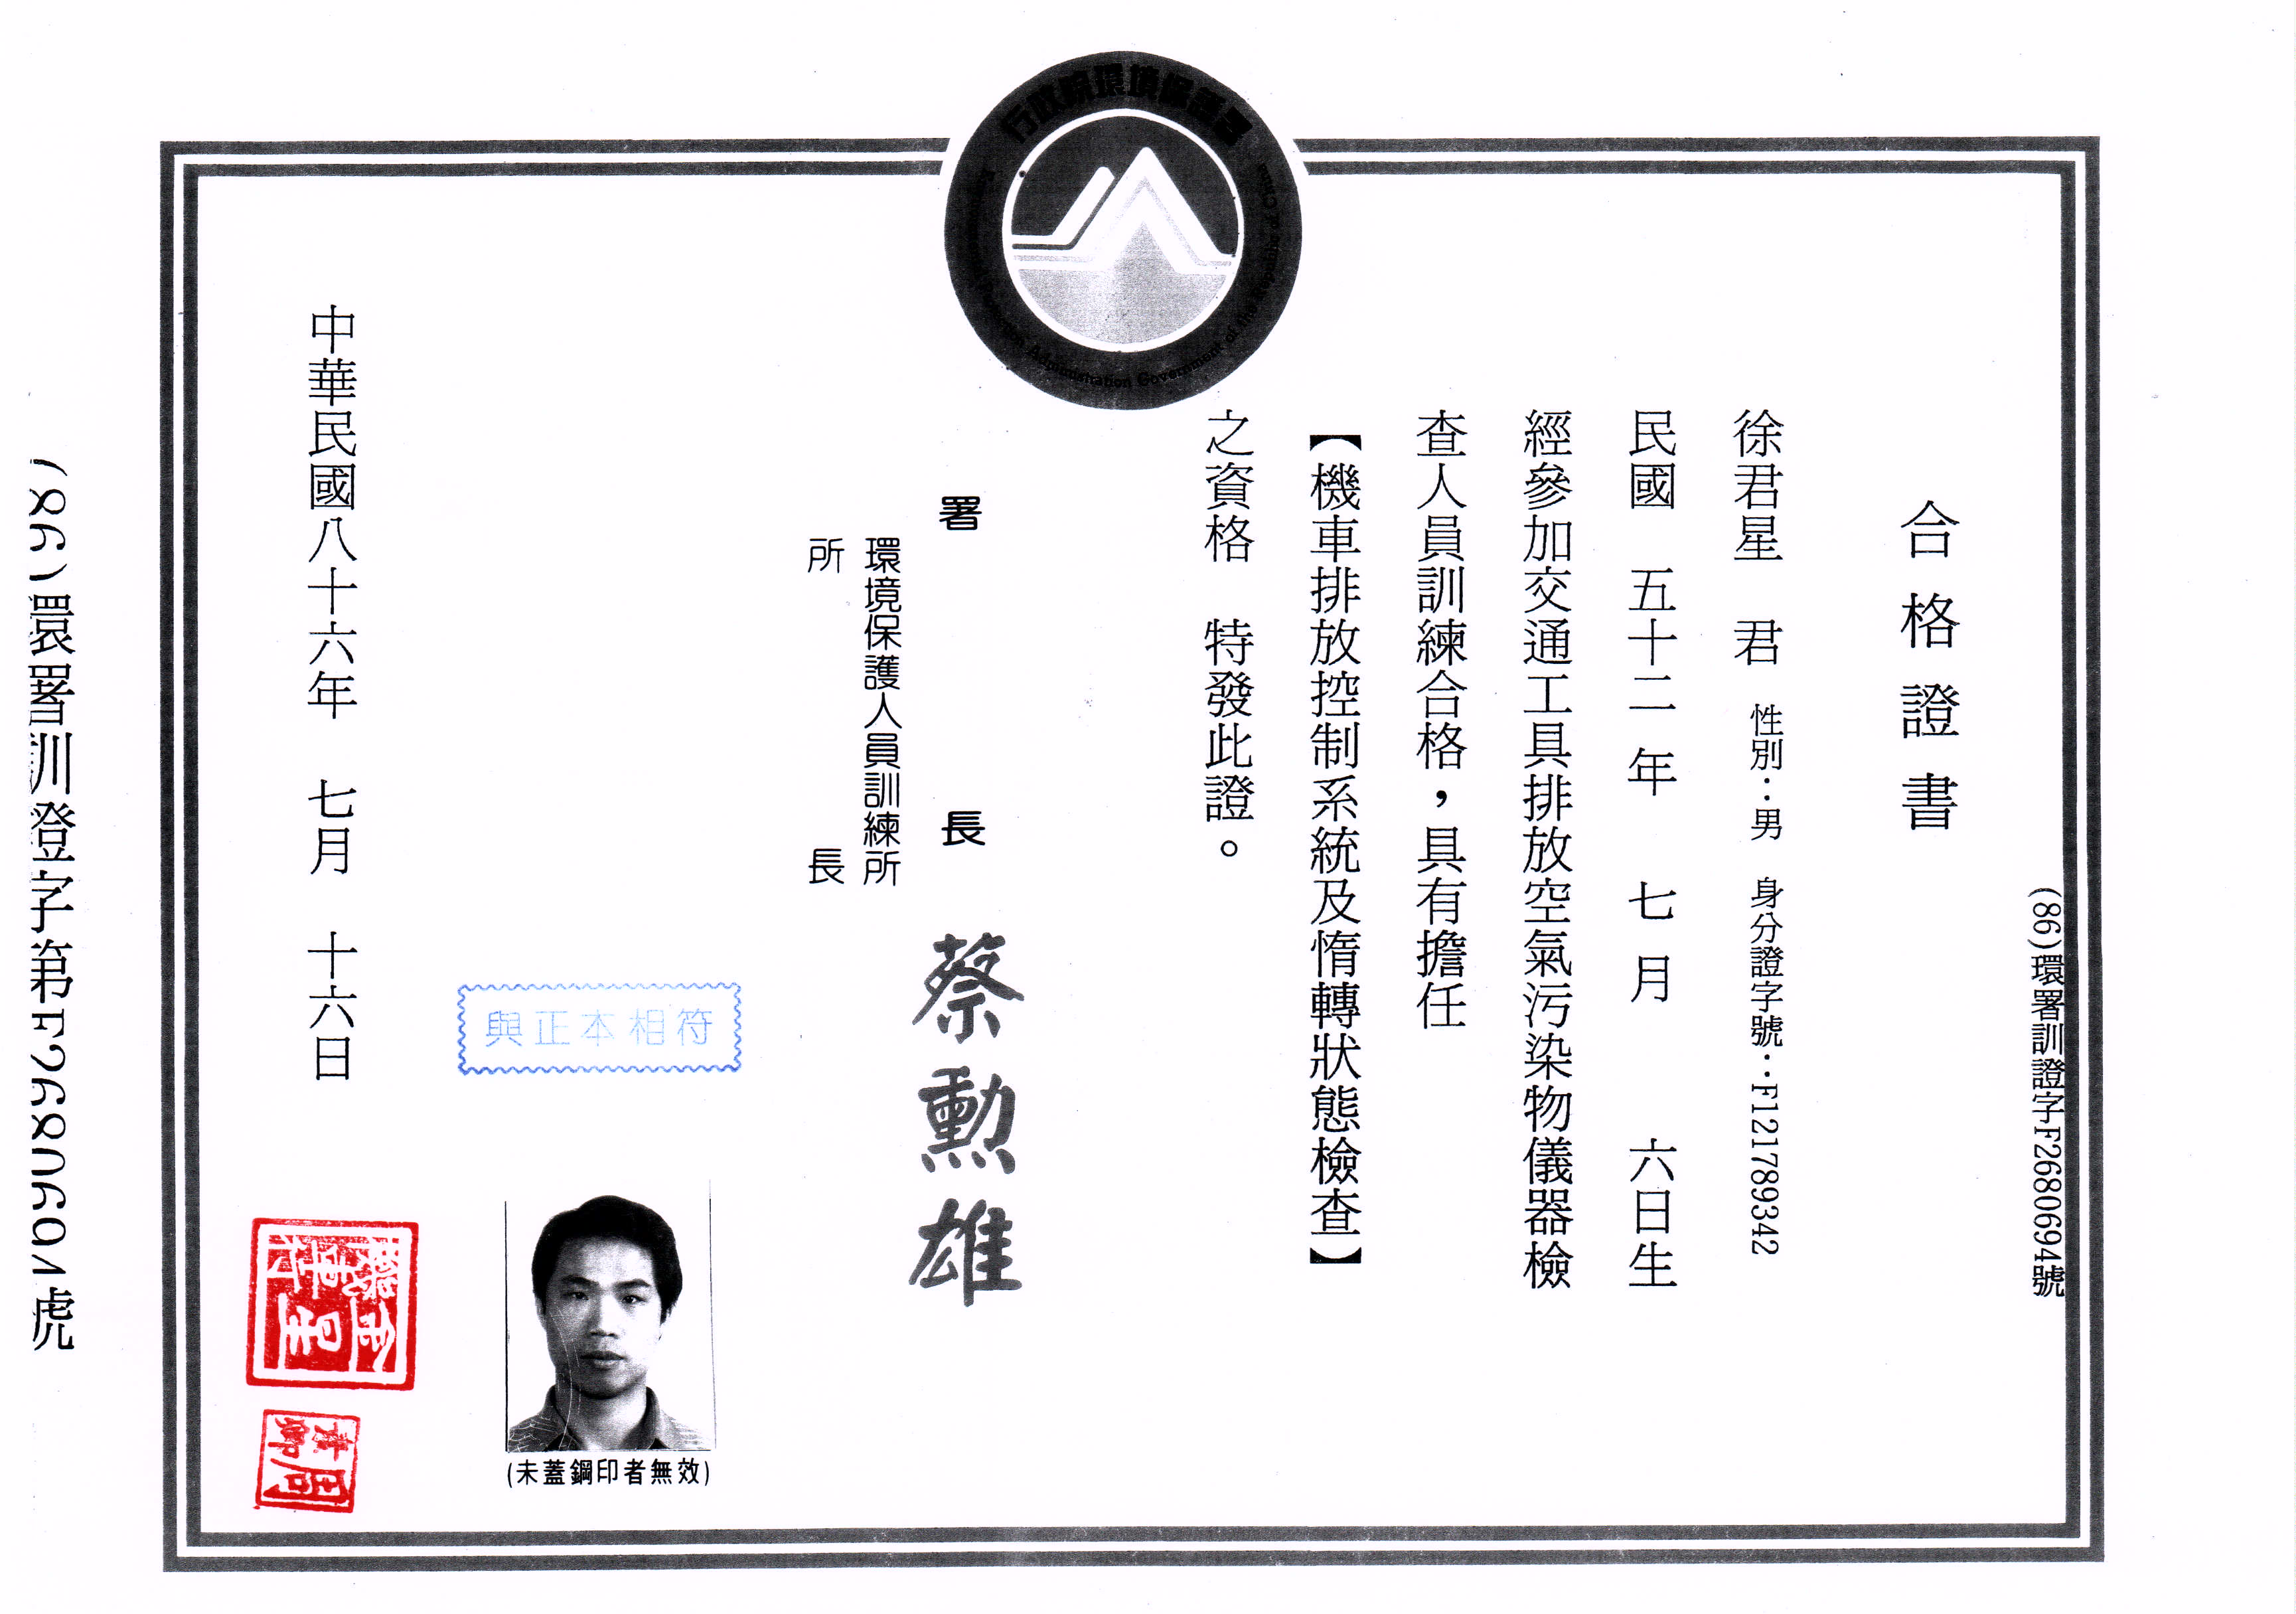 行政院環境保護署
Administration Government of the Republic of China
(86)環署訓證字F2680694號
合格證書
徐君星 君 性別：男 身分證字號：F121789342
民國 五十二年 七月 六日生
經參加交通工具排放空氣污染物儀器檢
查人員訓練合格，具有擔任
【機車排放控制系統及惰轉狀態檢查】
之資格 特發此證。
署長 蔡勳雄
環境保護人員訓練所
所長
與正本相符
(未蓋鋼印者無效)
中華民國八十六年 七月 十六日